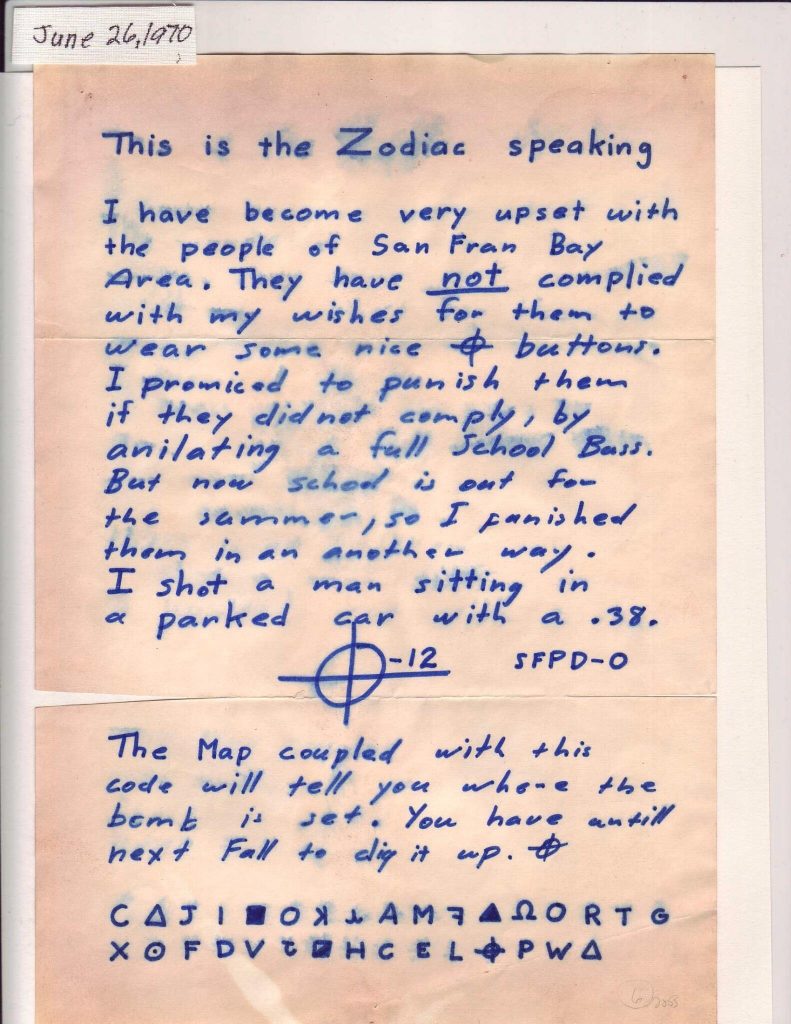 June 26, 1970
This is the Zodiac speaking
I have become very upset with
the people of San Fran Bay
Area. They have not complied
with my wishes for them to
wear some nice ⌖ buttons.
I promiced to punish them
if they did not comply, by
anilating a full School Buss.
But now school is out for
the summer, so I punished
them in an another way.
I shot a man sitting in
a parked car with a .38.
⌖-12 SFPD-0
The Map coupled with this
code will tell you where the
bomb is set. You have untill
next Fall to dig it up. ⌖
C Δ J I ■ O ʞ ⅄ A M ꟻ ▲ Ω O R T G
X ⊙ F D V Ɩ ◪ H C E L ⌖ P W Δ